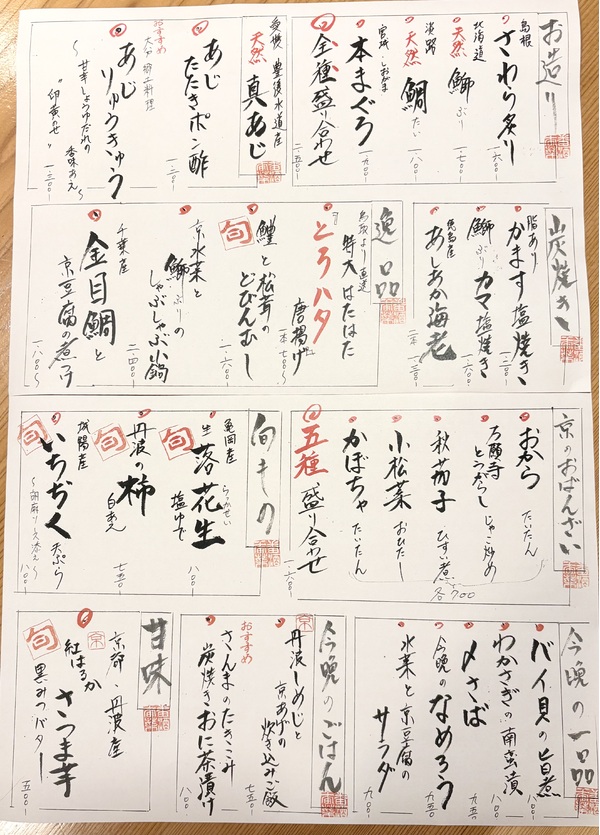 お造り
島根
さわら炙り
一六〇〇-
北海道
天然 鰤 ぶり
一七〇〇-
淡路
天然 鯛 たい
一八〇〇-
宮城・しおがま
本まぐろ
一九〇〇-
全種盛り合わせ
二五〇〇-
愛媛 豊後水道産
天然 真あじ
あじ
たたきポン酢
一三〇〇-
おすすめ
大分 郷土料理
あじ
りゅうきゅう
〜甘辛しょうゆだれの
香味あえ〜
"卵黄のせ"
一三〇〇-
炭焼き
脂あり
かます塩焼き
一二〇〇-
鰤 ぶり カマ塩焼き
一六〇〇-
鹿児島産
あしあか海老
二本 一三〇〇-
逸品
鳥取より直送
特大はたはた
とろハタ
唐揚げ
一本 七〇〇-
旬
鱧と松茸の
どびんむし
一六〇〇-
京水菜と
鰤 ぶり の
しゃぶしゃぶ小鍋
二四〇〇-
千葉産
金目鯛と
京豆腐の煮つけ
一八〇〇-
京のおばんざい
おから たいたん
万願寺
とうがらし じゃこ炒め
秋茄子 ひすい煮
小松菜 おひたし
かぼちゃ たいたん
各700
五種 盛り合わせ
一六〇〇-
旬もの
亀岡産
旬
生 落花生 らっかせい
塩ゆで
八〇〇-
旬
丹波の柿
白あえ
七五〇-
旬
城陽産
いちぢく 天ぷら
八〇〇-
今晩の一品
バイ貝の旨煮
八〇〇-
わかさぎの南蛮漬
八〇〇-
〆さば
九五〇-
今晩のなめろう
九五〇-
水菜と京豆腐の
サラダ
九〇〇-
今晩のごはん
京
丹波しめじと
京あげの
炊き込みご飯
七五〇-
おすすめ
さんまのたきこみ
炭焼きおに茶漬け
八〇〇-
甘味
京
京都 丹波産
旬
紅はるか
さつま芋
黒みつバター
五〇〇-